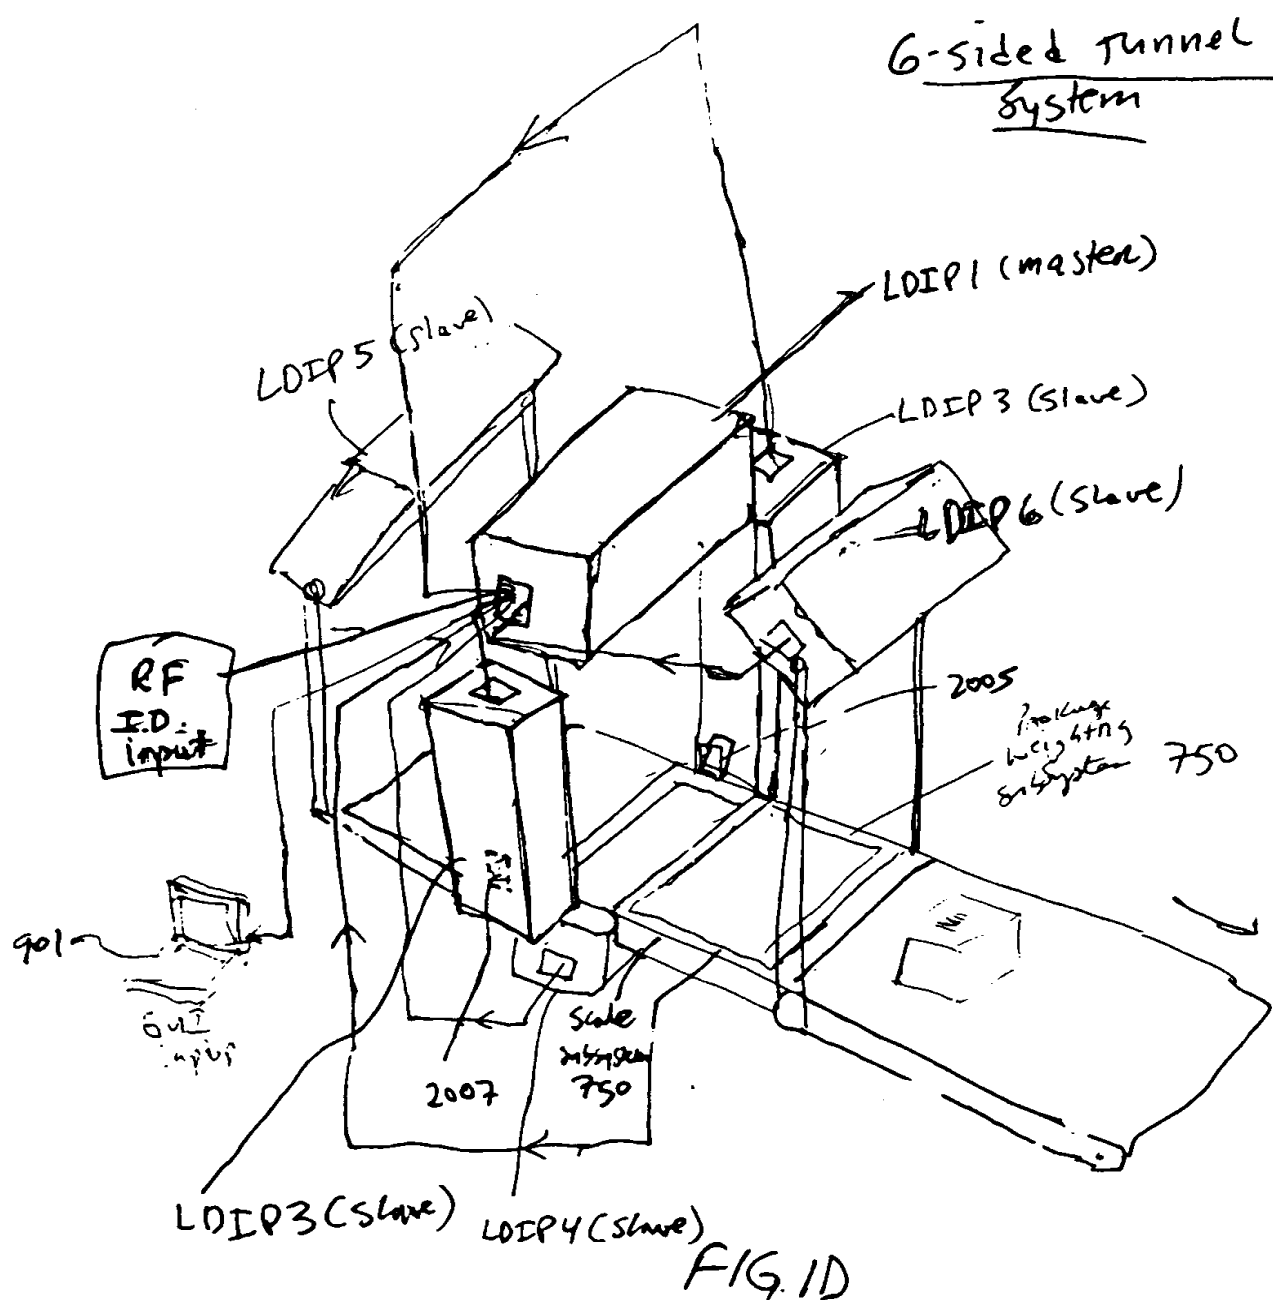 6-sided Tunnel
System
LDIP1 (master)
LDIP5 (slave)
LDIP3 (slave)
LDIP6 (slave)
RF
I.D.
input
2005
Package
weighing
subsystem 750
901
input
2007
Scale
subsystem
750
LDIP3 (slave)
LDIP4 (slave)
FIG. 1D